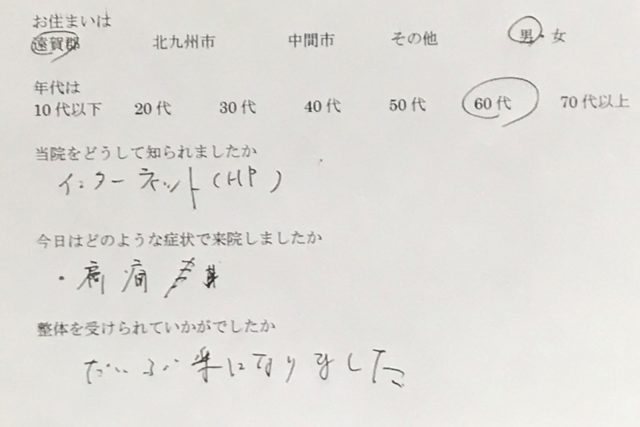 お住まいは
遠賀郡 北九州市 中間市 その他 男・女
年代は
10代以下 20代 30代 40代 50代 60代 70代以上
当院をどうして知られましたか
インターネット(HP)
今日はどのような症状で来院しましたか
・肩痛
整体を受けられていかがでしたか
だいぶ楽になりました。